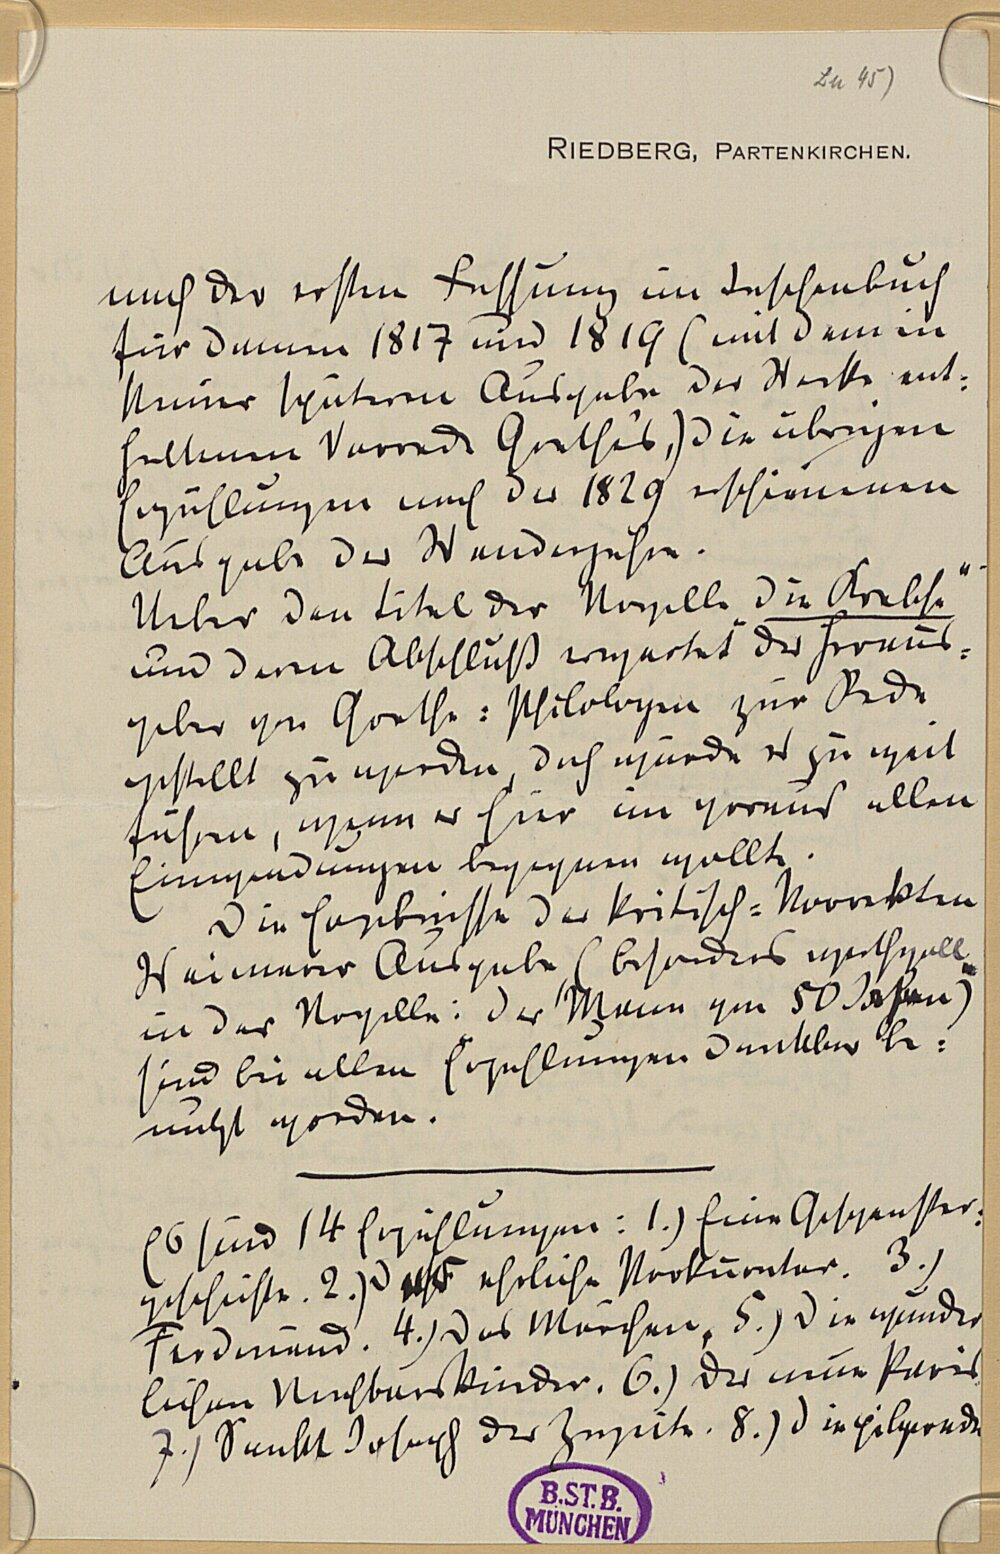 Zu 45)
RIEDBERG, PARTENKIRCHEN.
nach der ersten Fassung im Taschenbuch
für Damen 1817 und 1819 (mit dem in
keiner späteren Ausgabe der Werke ent:
haltenen Vorrede Goethes,) die übrigen
Erzählungen nach der 1829 erschienenen
Ausgabe der Wanderjahre.
Ueber den Titel der Novelle „die Krebse“
und deren Abschluß erwartet der Heraus:
geber von Goethe: Philologen zur Rede
gestellt zu werden, doch würde es zu weit
führen, wenn er hier im voraus allen
Einwendungen begegnen wollte.
Die Ergebnisse der kritisch: korrekten
Weimarer Ausgabe (besonders werthvoll
in der Novelle: der „Mann von 50 Jahren“)
sind bei allen Erzählungen dankbar be:
nutzt worden.
Es sind 14 Erzählungen: 1.) Eine Gespenster:
geschichte. 2.) Der ehrliche Prokurator. 3.)
Ferdinand. 4.) Das Märchen. 5.) Die wunder
lichen Nachbarskinder. 6.) Der neue Paris.
7.) Sankt Joseph der Zweite. 8.) Die pilgernde
B.ST.B.
MÜNCHEN